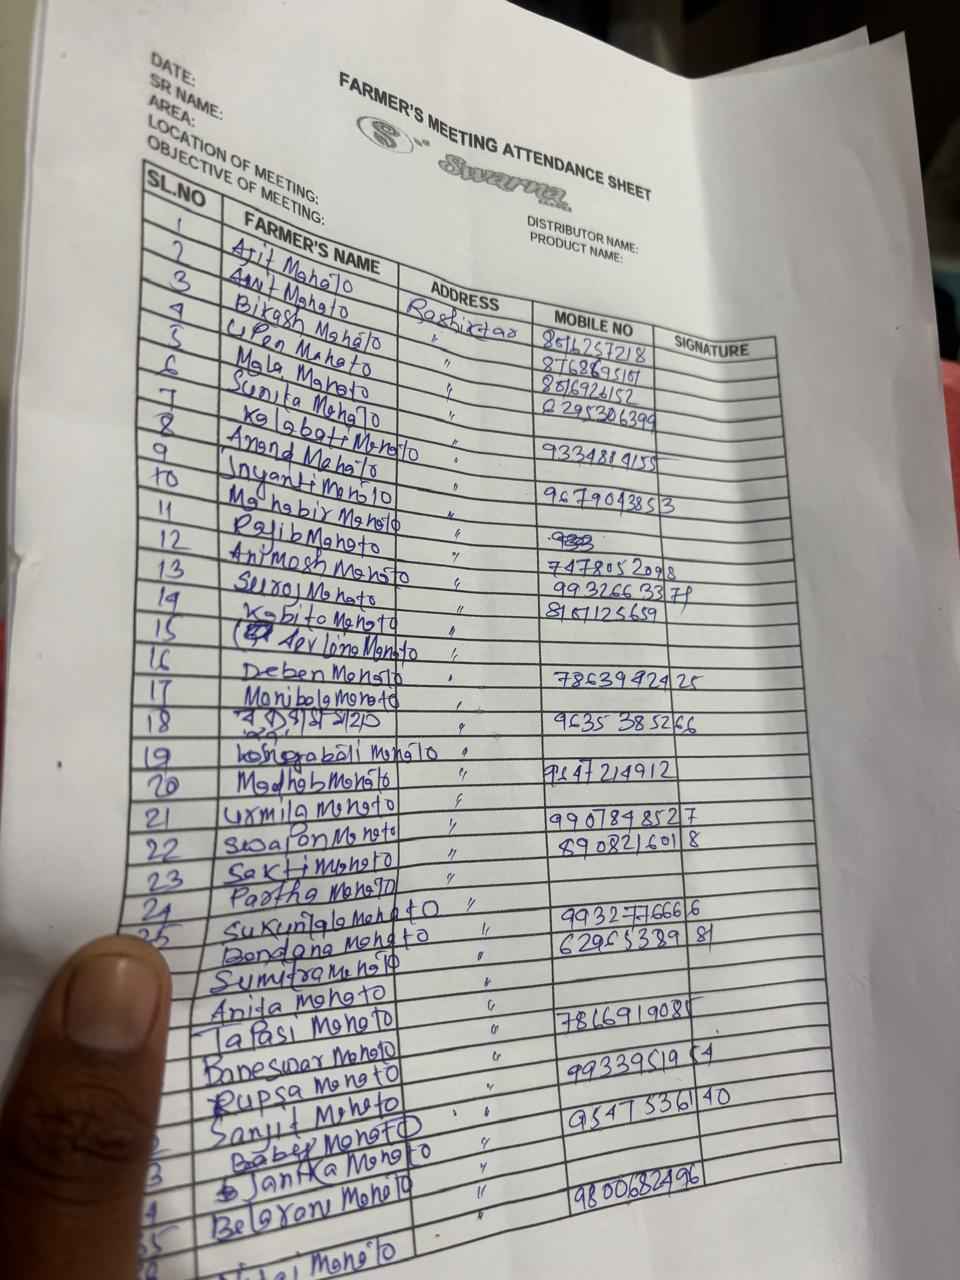 FARMER'S MEETING ATTENDANCE SHEET
S Swarna
DATE:
SR NAME:
AREA:
LOCATION OF MEETING:
OBJECTIVE OF MEETING:
DISTRIBUTOR NAME:
PRODUCT NAME:
SL.NO FARMER'S NAME ADDRESS MOBILE NO SIGNATURE
1 Ajit Mahato
2 Amit Mahato 8016257218
3 Bikash Mahato " 8768695101
4 UPen Mahato " 8016926152
5 Mala Mahato " 6295306399
6 Sunita Mahato "
7 Kalabati Mahato " 9334884155
8 Anand Mahato "
9 Jnyanti Mahato " 9679043853
10 Mahabir Mahato "
11 Rajib Mahato "
12 Animash Mahato " 7478052098
13 Suroj Mahato "
14 Kabita Mahato " 8101125659
15 Mahato "
16 Deben Mahato " 7863942425
17 Manibala Mahato "
18 " 9635385266
19 Mahato "
20 Madhab Mahato " 9147214912
21 Urmila Mahato "
22 Swapon Mahato " 9907848527
23 Sakti Mahato " 8908216018
24 Partha Mahato "
25 Sukuntala Mahato "
Bondana Mahato " 9932776666
Sumitra Mahato " 81
Anita Mahato "
Tapasi Mahato "
Baneswar Mahato " 7866919085
Rupsa Mahato "
Sanjit Mahato " 99339519
Mahato " 9547536140
Janika Mahato "
Mahato "
Mahato 9800682496